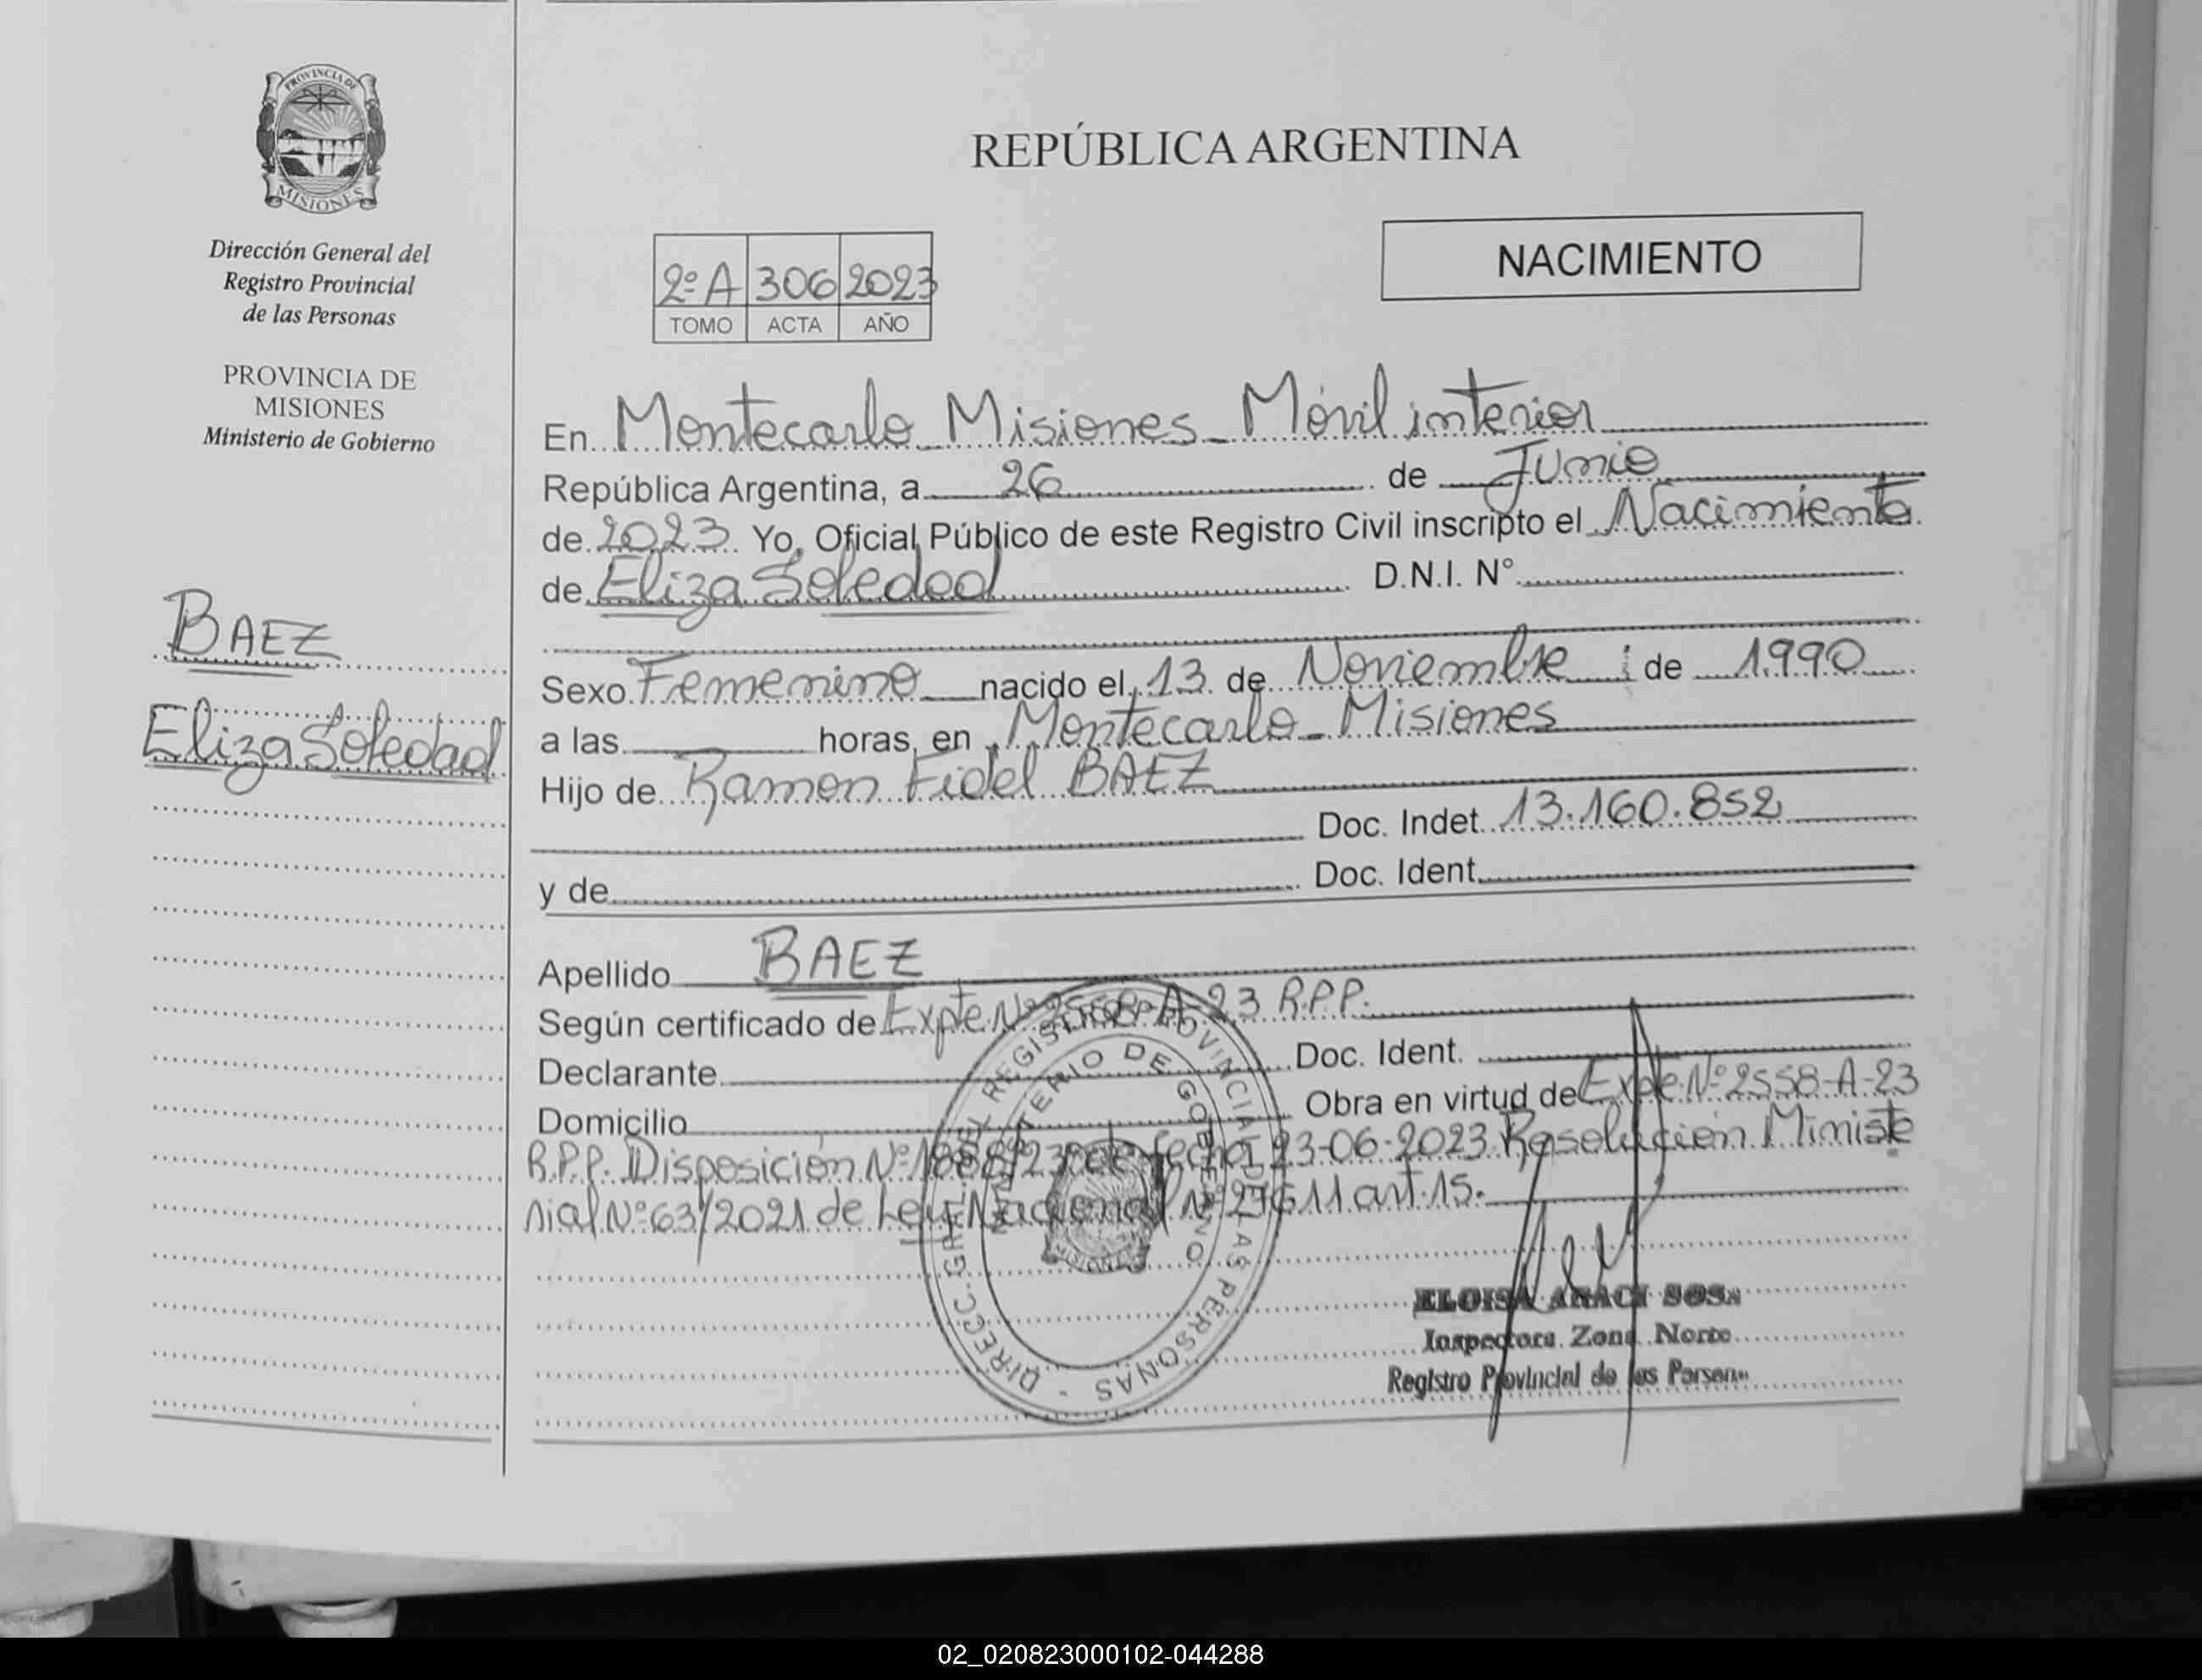 PROVINCIA DE
MISIONES
Dirección General del
Registro Provincial
de las Personas
PROVINCIA DE
MISIONES
Ministerio de Gobierno
BAEZ
Eliza Soledad
REPÚBLICA ARGENTINA
2º A 306 2023
TOMO ACTA AÑO
NACIMIENTO
En Montecarlo Misiones Móvil interior
República Argentina, a 26 de Junio
de 2023 Yo, Oficial Público de este Registro Civil inscripto el Nacimiento
de Eliza Soledad D.N.I. N°
Sexo Femenino nacido el 13 de Noviembre de 1990
a las horas, en Montecarlo - Misiones
Hijo de Ramon Fidel BAEZ
Doc. Indet. 13.160.852
y de Doc. Ident.
Apellido BAEZ
Según certificado de Expte. Nº 2558-A-23 R.P.P.
Declarante Doc. Ident.
Domicilio Obra en virtud de Expte. Nº 2558-A-23
R.P.P. Disposición Nº fecha 23-06-2023 Resolución Ministe
rial Nº 63/2021 de Ley Nacional Nº art. 15.
DIRECC. GRAL. DEL REGISTRO PROVINCIAL DE LAS PERSONAS -
MINISTERIO DE GOBIERNO
MISIONES
ELOISA ARACI SOSA
Inspectora Zona Norte
Registro Provincial de las Person
02_020823000102-044288